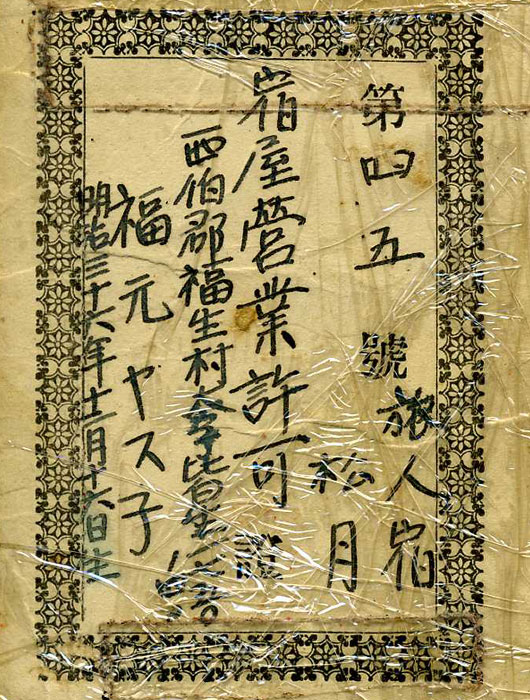 第四五號
旅人宿
松月
宿屋營業許可證
西伯郡福生村大字皆生
福元ヤス子
明治三十六年十二月十六日生